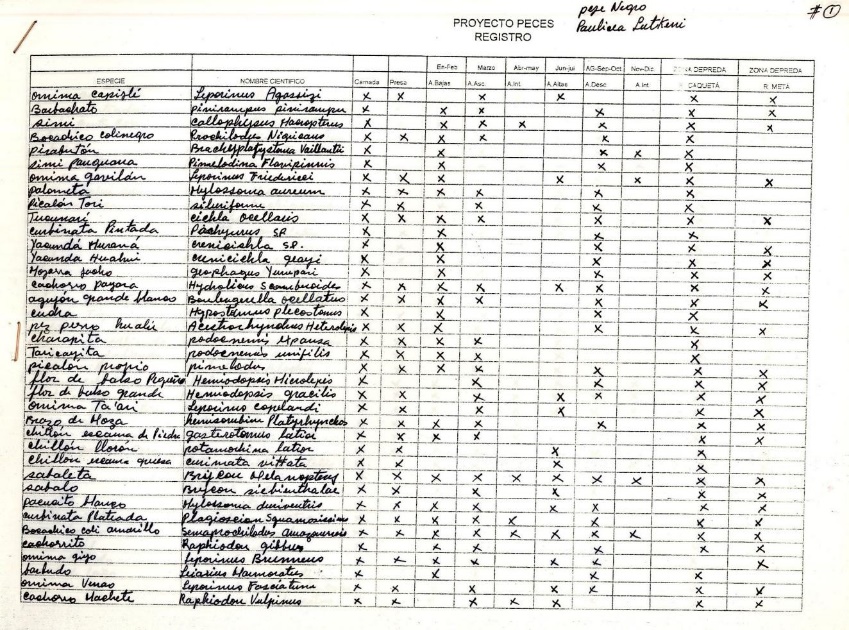 pepe Negro
Paulicea Lutkeni
#①
PROYECTO PECES
REGISTRO
En-Feb Marzo Abr-may Jun-jul AG-Sep-Oct Nov-Dic. ZONA DEPREDA ZONA DEPREDA
ESPECIE NOMBRE CIENTIFICO Carnada Presa A.Bajas A.Asc. A.Int. A.Altas A.Desc A.Int CAQUETÁ R. META
omima capislé Leporinus Agassizi X X X X X X
Barbachato pinirampus pinirampu X X X X X X
simi callophysus Macropterus X X X X X X X
Bocachico colinegro Prochilodus Nigricans X X X X X X
picabutón Brachyplatystoma Vaillantii X X X X X
simi panguana Pimelodina Flavipinnis X X X X
omima gavilán Leporinus Friederici X X X X X X X
palometa Mylossoma aureum X X X X X X
Picalón Tori siluriforme X X X X X
Tucunaré cichla ocellaris X X X X X X X
curbinata Pintada Pachyurus SP X X X X
Yacundá Huraná crenicichla S.P. X X X X X
Yacunda Huahui crenicichla geayi X X X X X
Mojarra jacho geophagus Yurupari X X X X X
cachorro payara Hydrolicus Scomberoides X X X X X X X X
agujón grande blanco Boulengerella ocellatus X X X X X X X
cucha Hypostomus plecostomus X X X X
pez perro huali Acestrorhynchus Heterolepis X X X X X
charapita podocnemis expansa X X X X X
Taricayita podocnemis unifilis X X X X X
picalón propio pimelodus X X X X X X X
flor de balso Pequeño Hemiodopsis Microlepis X X X X X
flor de balso grande Hemiodopsis gracilis X X X X X X X
omima Ta'ari Leporinus copelandi X X X X X
Brazo de Moza hemisorubim Platyrhynchos X X X X X X
chillón escama de Piedra gasterotomus latior X X X X X X
chillón lloron potamorhina latior X X X X
chillon escama gruesa curimata vittata X X X X
sabaleta Brycon Melanopterus X X X X X X X X X X
sabalo Brycon siebenthalae X X X X X X
pacucito Manzo Mylossoma duriventris X X X X X X X X
curbinata Plateada Plagioscion Squamosissimus X X X X X X X X
Bocachico coli amarillo Semaprochilodus Amazonensis X X X X X X X X X X
cachorrito Raphiodon gibbus X X X X X X
omima gijo Leporinus Brunneus X X X X X X X
barbudo Leiarius Marmoratus X X X X
omima Vinas Leporinus Fasciatum X X X X X X X
cachorro Machete Raphiodon Vulpinus X X X X X X X